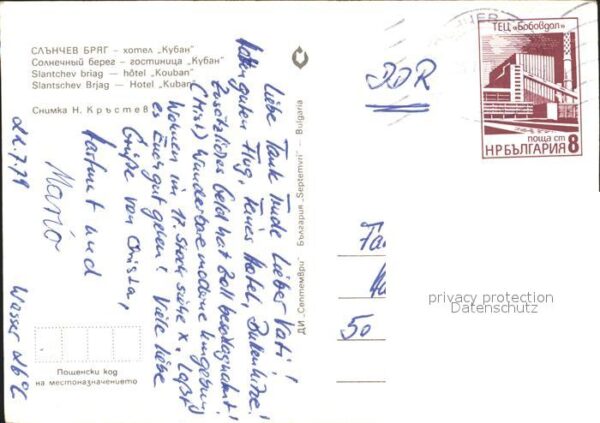 СЛЪНЧЕВ БРЯГ – хотел „Кубан"
Солнечный берег – гостиница „Кубан"
Slantchev briag — hôtel „Kouban"
Slantschev Brjag — Hotel „Kuban"
Снимка Н. Кръстев
22.7.79
Liebe Tante Trude! Lieber Vati!
Hatten guten Flug, feines Hotel, Bullenhitze!
Zusätzliches Geld hat Zoll beschlagnahmt!
(Mist) Wunderbare moderne Umgebung
Wohnen im 17. Stock siehe X. Laßt
es Euch gut gehen! Viele liebe
Grüße von Christa,
Hartmut und
Mario
Wasser 26°C
Пощенски код
на местоназначението
ДИ „Септември" – България „Septemvri" — Bulgaria
ТЕЦ „Бобовдол"
поща ст
НР БЪЛГАРИЯ 8
DDR
50
privacy protection
Datenschutz